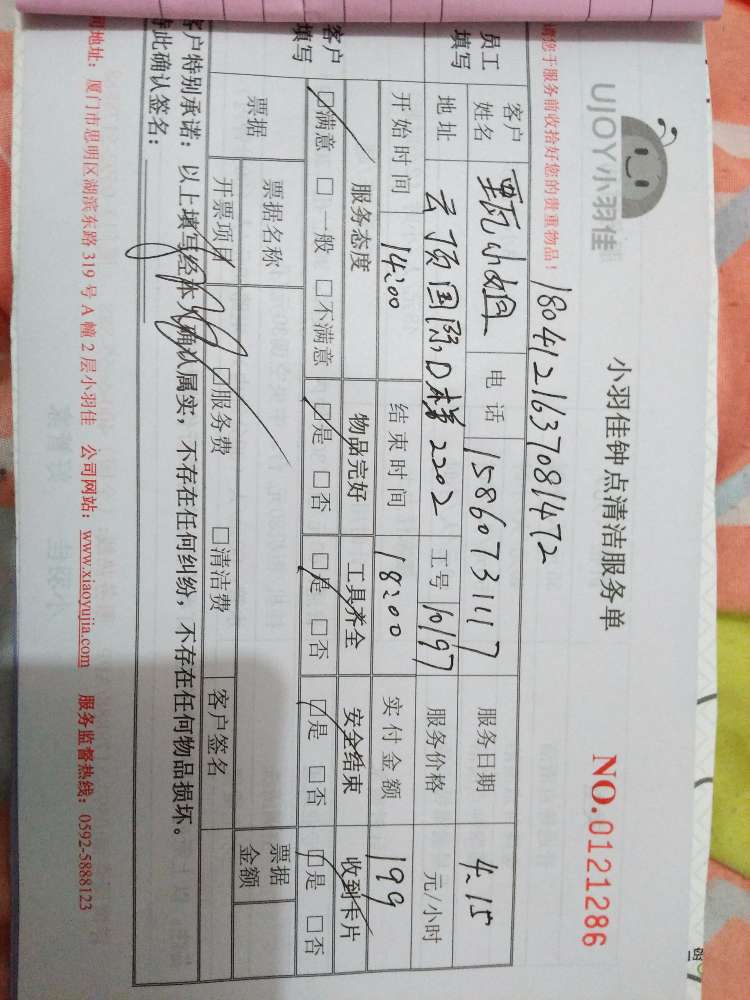 UJOY小羽佳
小羽佳钟点清洁服务单
NO.0121286
请您于服务前收拾好您的贵重物品!
1804121637081472
员工填写
客户姓名 甄小姐 电话 15860731117 服务日期 4.15
地址 云顶国际D栋2202 工号 10197 服务价格 元/小时
开始时间 14:00 结束时间 18:00 实付金额 199
客户填写
服务态度 物品完好 工具齐全 安全结束 收到卡片
□满意 □一般 □不满意 □是 □否 □是 □否 □是 □否 □是 □否
票据 票据名称 票据金额
开票项目 □服务费 □清洁费 客户签名
客户特别承诺:以上填写经本人确认属实,不存在任何纠纷,不存在任何物品损坏。
特此确认签名:
司地址:厦门市思明区湖滨东路 319 号 A 幢 2 层小羽佳 公司网站:www.xiaoyujia.com 服务监督热线:0592-5888123